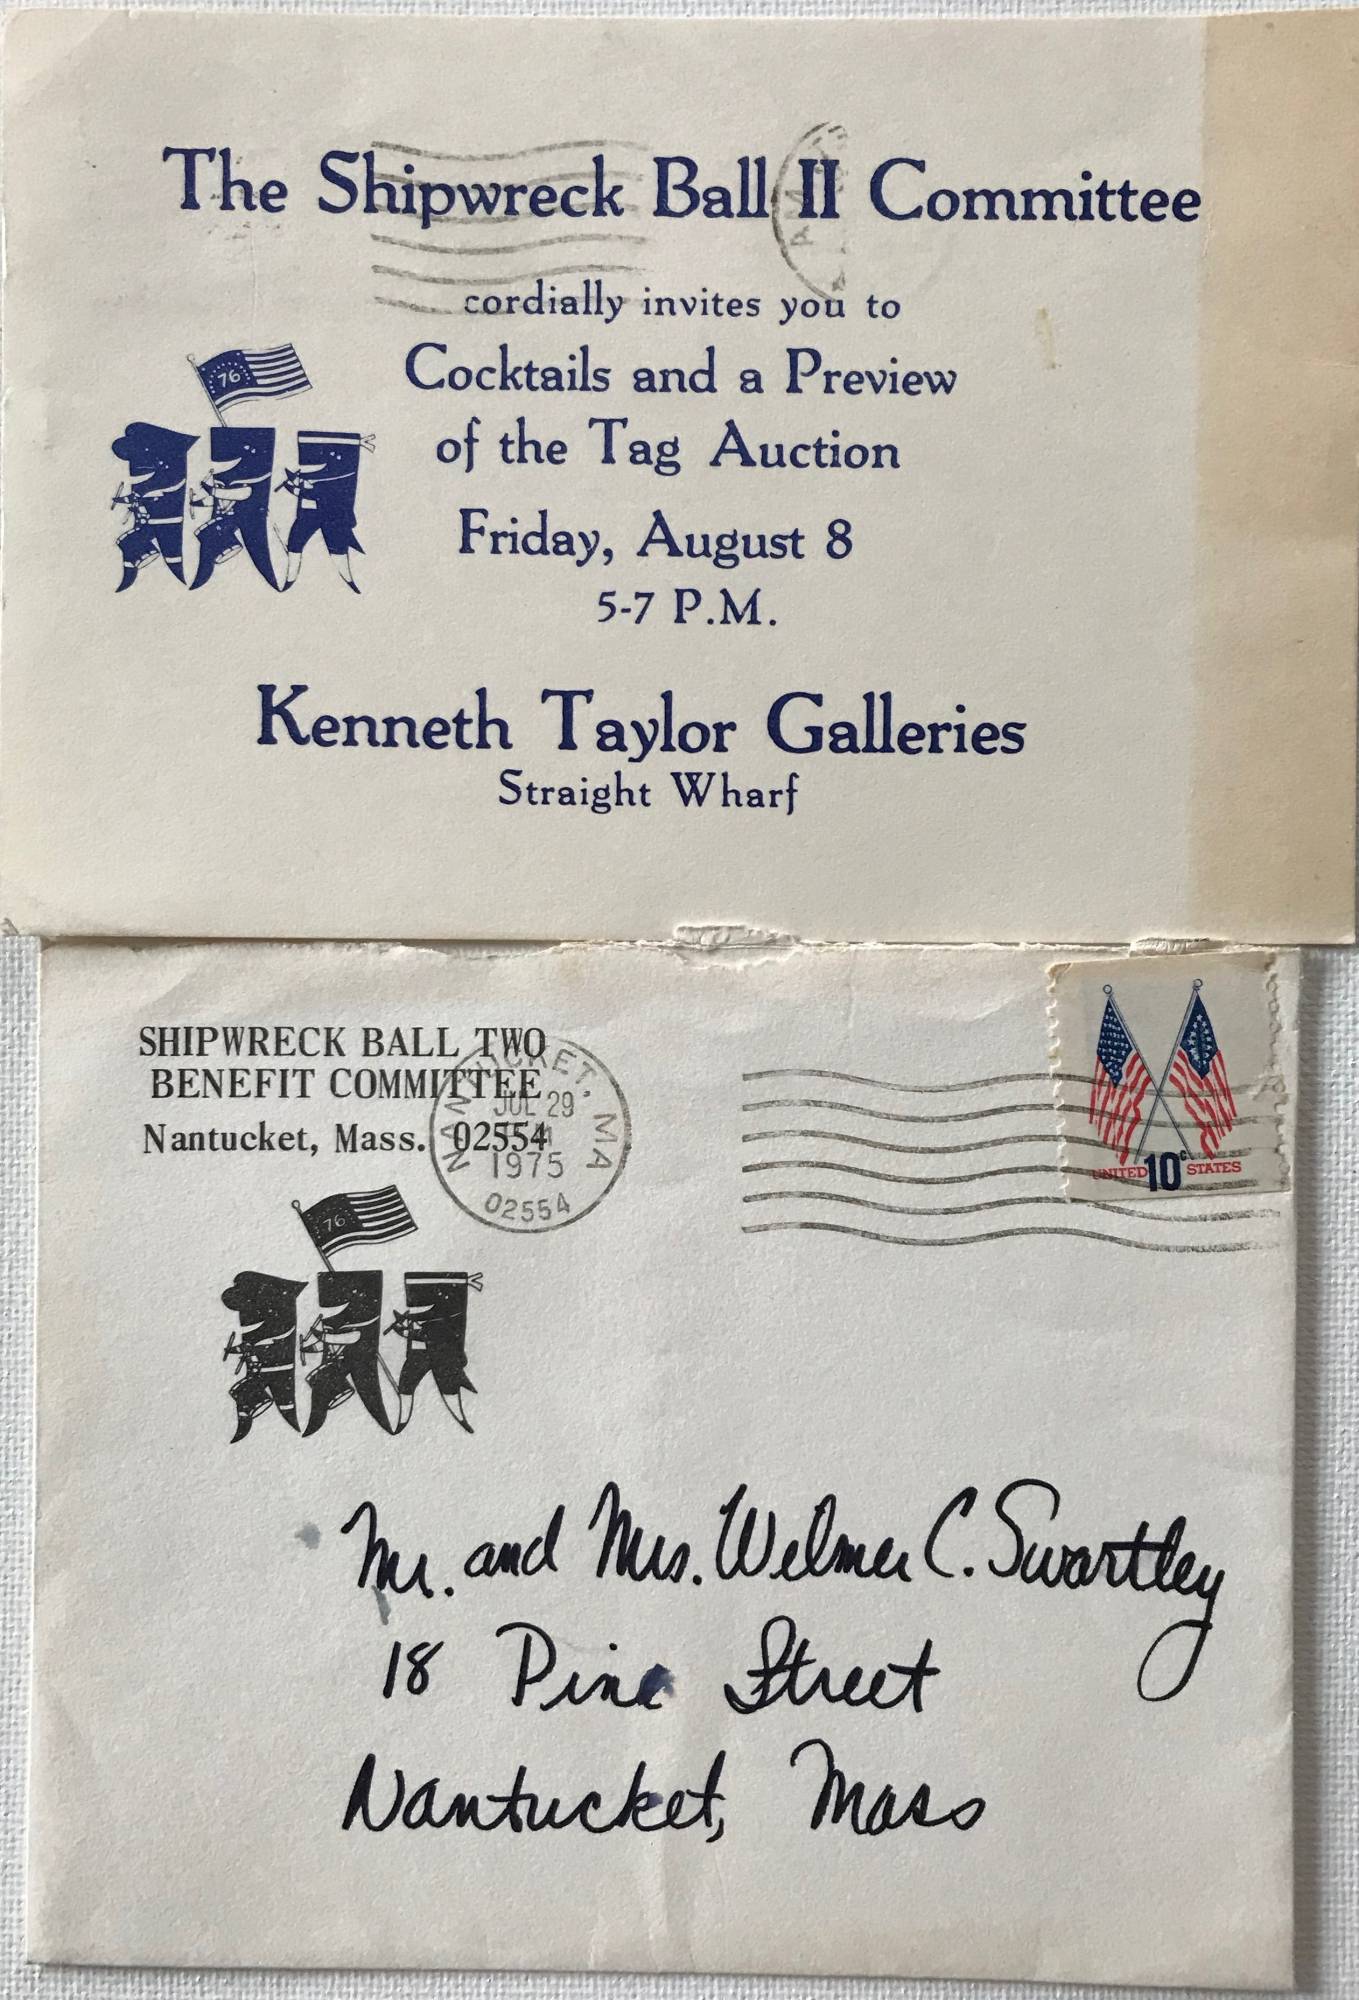 The Shipwreck Ball II Committee
cordially invites you to
Cocktails and a Preview
of the Tag Auction
Friday, August 8
5-7 P.M.
Kenneth Taylor Galleries
Straight Wharf
76
SHIPWRECK BALL TWO
BENEFIT COMMITTEE
Nantucket, Mass. 02554
NANTUCKET, MA
JUL 29
1975
02554
UNITED 10c STATES
76
Mr. and Mrs. Wilmer C. Swartley
18 Pine Street
Nantucket, Mass